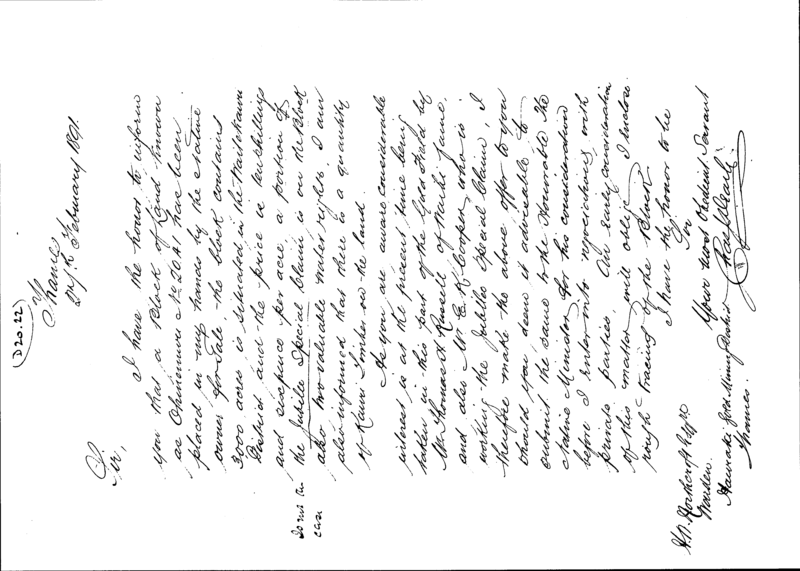 (D 20.22)
Thames
27th February 1891.
Sir,
I have the honor to inform
you that a Block of Land known
as Ohinemuri No 20 A1 has been
placed in my hands by the native
owner for Sale the block contains
3000 acres is situated in the Waitekauri
District and the price is two shillings
and sixpence per acre a portion of
the Jubilee Special Claim is on the Block
is not the
case
also two valuable water rights, I am
also informed that there is a quantity
of Kauri Timber on the land.
As you are aware considerable
interest is at the present time being
taken in this part of the Goldfield by
Mr Thomas Russell of Waihi fame.
and also Mr E. K. Cooper who is
working the Jubilee Special Claim, I
therefore make the above offer to you
should you deem it advisable to
submit the same to the Honorable The
Native Minister for his consideration
before I enter into negociations with
private parties. An early consideration
of this matter will oblige. I inclose
rough tracing of the Block
I have the honor to be
Sir
Your most Obedient Servant
H. W. Northcroft Esqre
Warden.
Hauraki Gold Mining District
Thames.